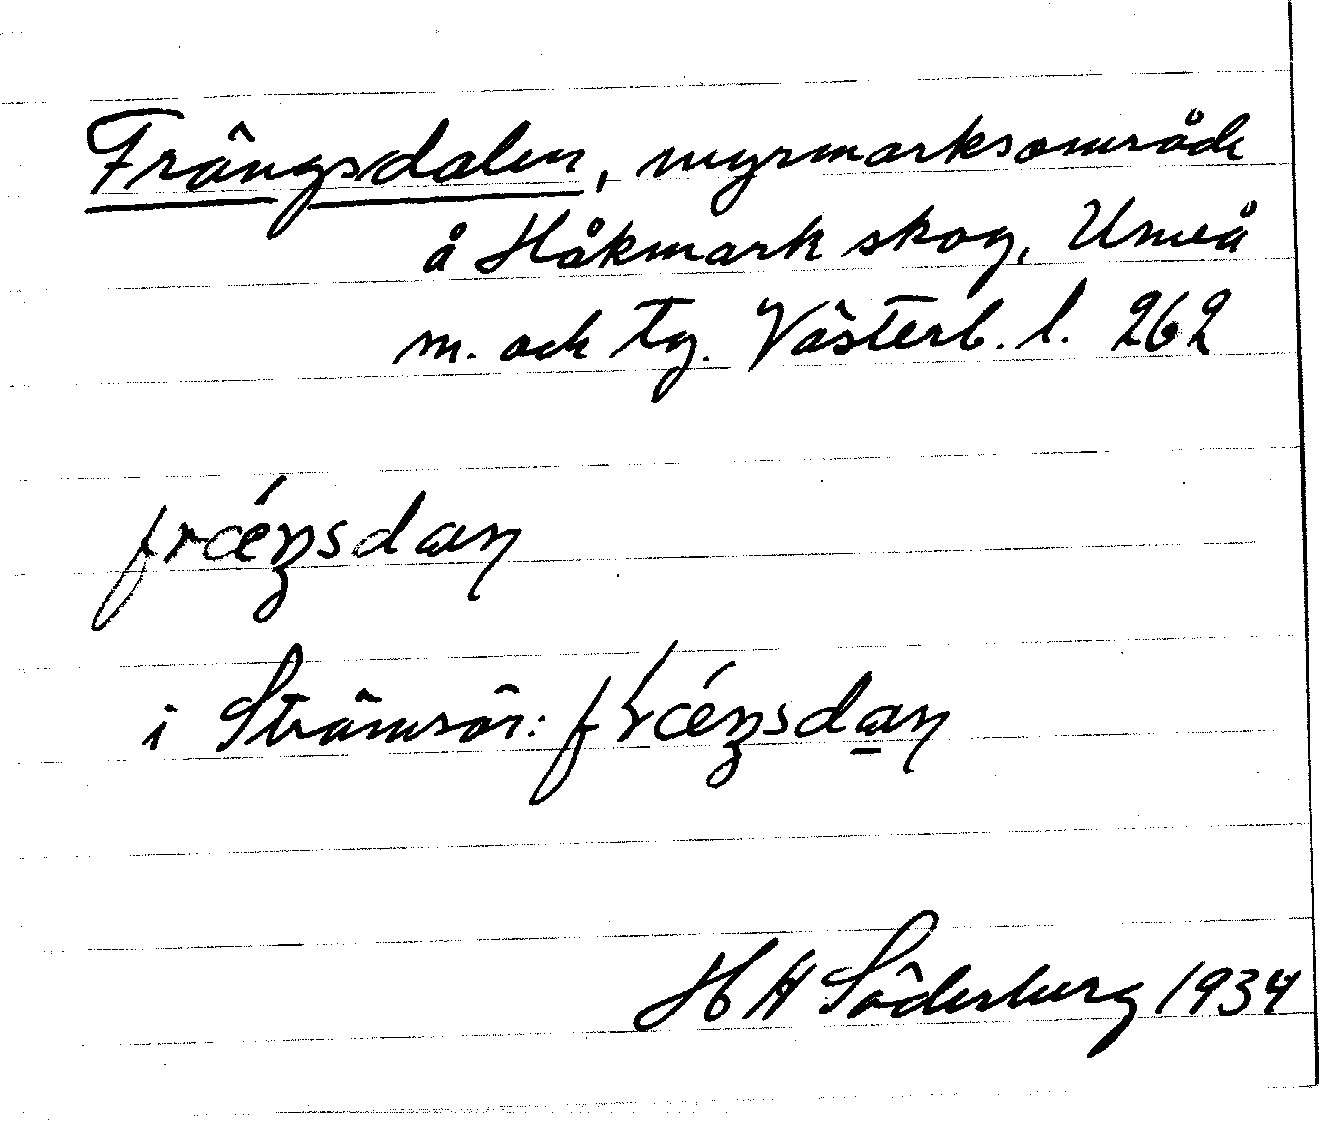 Frängsdalen, myrmarksområde
å Håkmark skog, Umeå
m. och tg. Västerb. l. 262
frǽŋsdaɳ
i Strömsör: frǽŋsda̲ɳ
H H Söderberg 1934